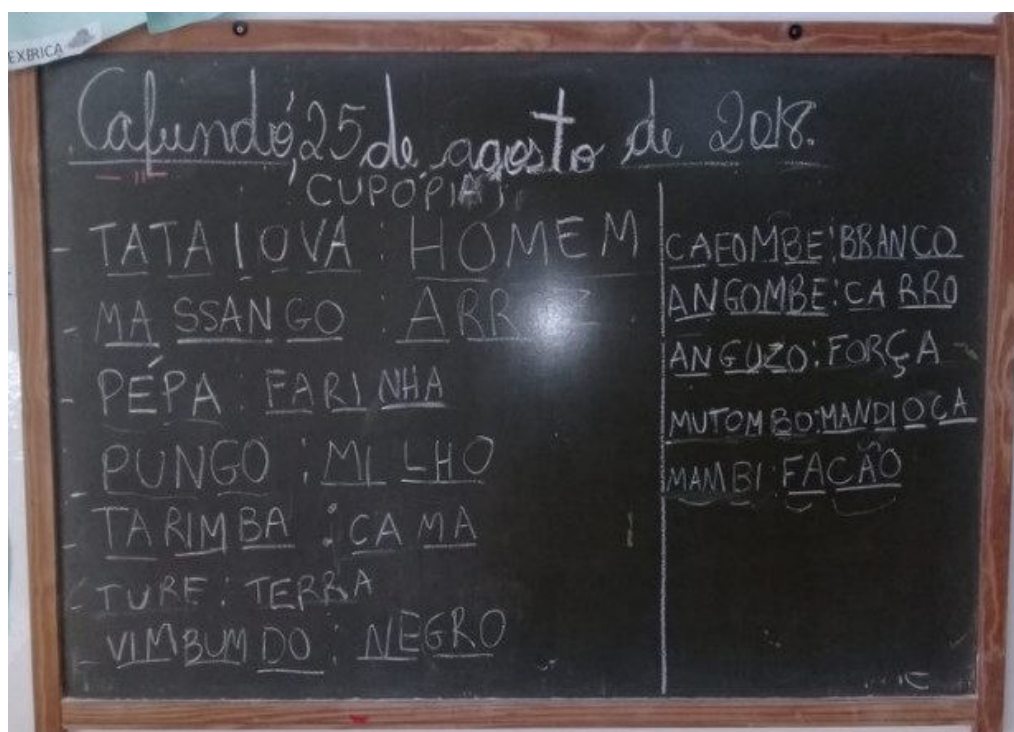 EXIRICA
Cafundó, 25 de agosto de 2018.
CUPÓPIA
- TATA IOVA : HOMEM
- MASSANGO : ARROZ
- PÉPA : FARINHA
- PUNGO : MILHO
- TARIMBA : CAMA
- TURE : TERRA
- VIMBUMDO : NEGRO
CAFOMBE : BRANCO
ANGOMBE : CARRO
ANGUZO : FORÇA
MUTOMBO : MANDIOCA
MAMBI : FACÃO